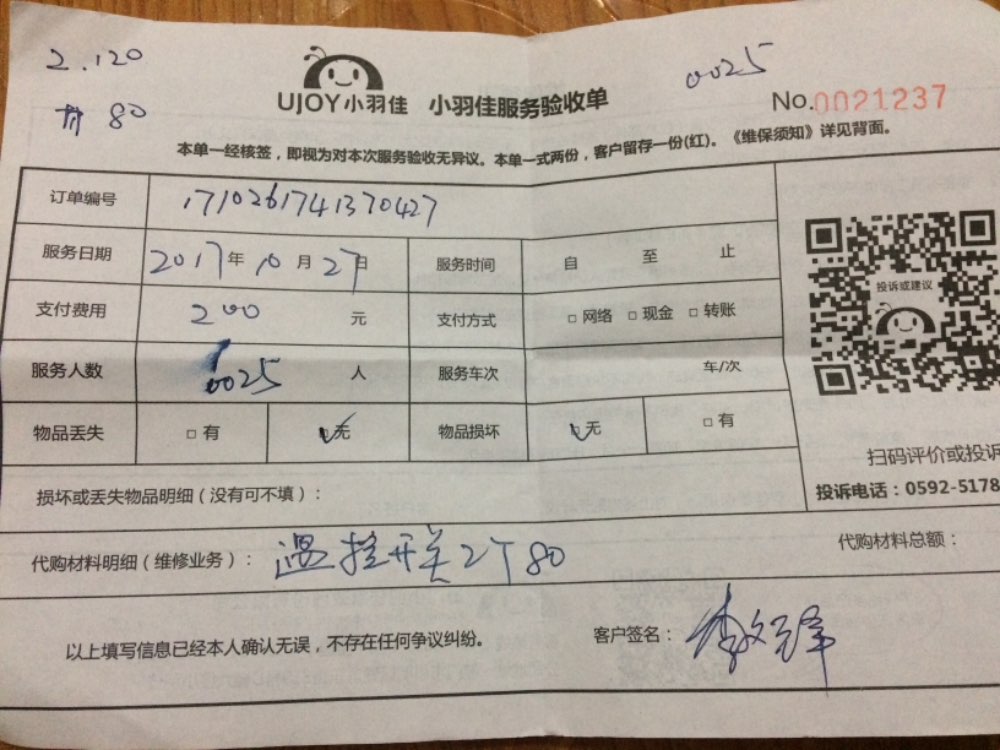 2.120
80
0025
UJOY小羽佳 小羽佳服务验收单
No.0021237
本单一经核签，即视为对本次服务验收无异议。本单一式两份，客户留存一份(红)。《维保须知》详见背面。
订单编号 1710261741370427
服务日期 2017年10月27日 服务时间 自 至 止
支付费用 200 元 支付方式 □网络 □现金 □转账
服务人数 0025 人 服务车次 车/次
物品丢失 □有 ☑无 物品损坏 ☑无 □有
投诉或建议
扫码评价或投诉
投诉电话：0592-5178
损坏或丢失物品明细（没有可不填）：
代购材料明细（维修业务）：温控开关2个80 代购材料总额：
以上填写信息已经本人确认无误，不存在任何争议纠纷。 客户签名：